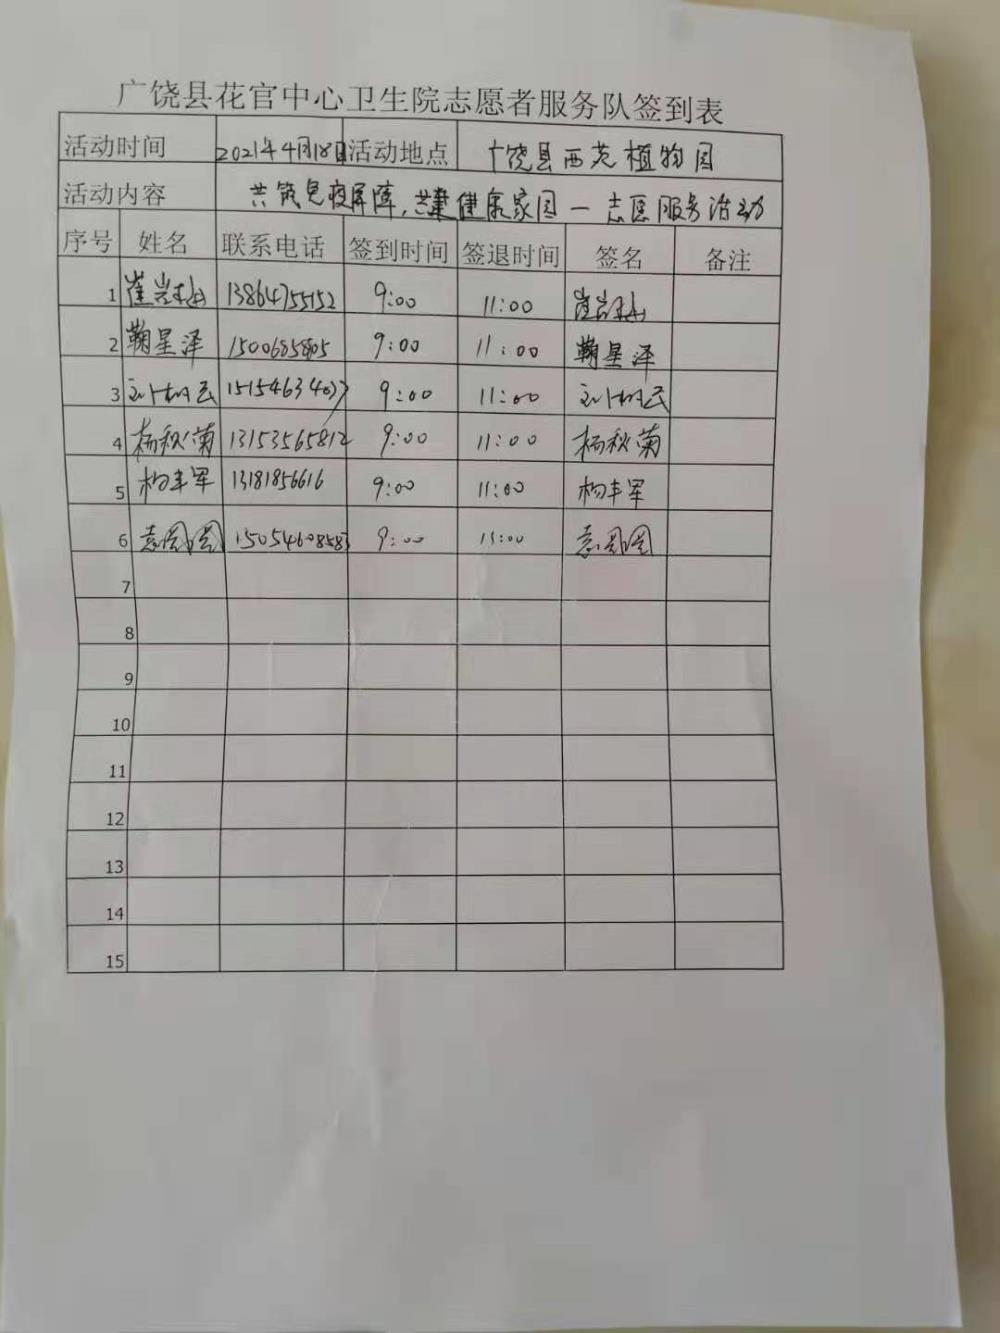 广饶县花官中心卫生院志愿者服务队签到表
活动时间 2021年4月18日 活动地点 广饶县西苑植物园
活动内容 共筑免疫屏障,共建健康家园一志愿服务活动
序号 姓名 联系电话 签到时间 签退时间 签名 备注
1 崔岩 13864755152 9:00 11:00 崔岩
2 鞠星泽 9:00 11:00 鞠星泽
3 15154634077 9:00 11:00
4 杨秋菊 13153565812 9:00 11:00 杨秋菊
5 杨丰军 13181856616 9:00 11:00 杨丰军
6 9:00 11:00
7
8
9
10
11
12
13
14
15